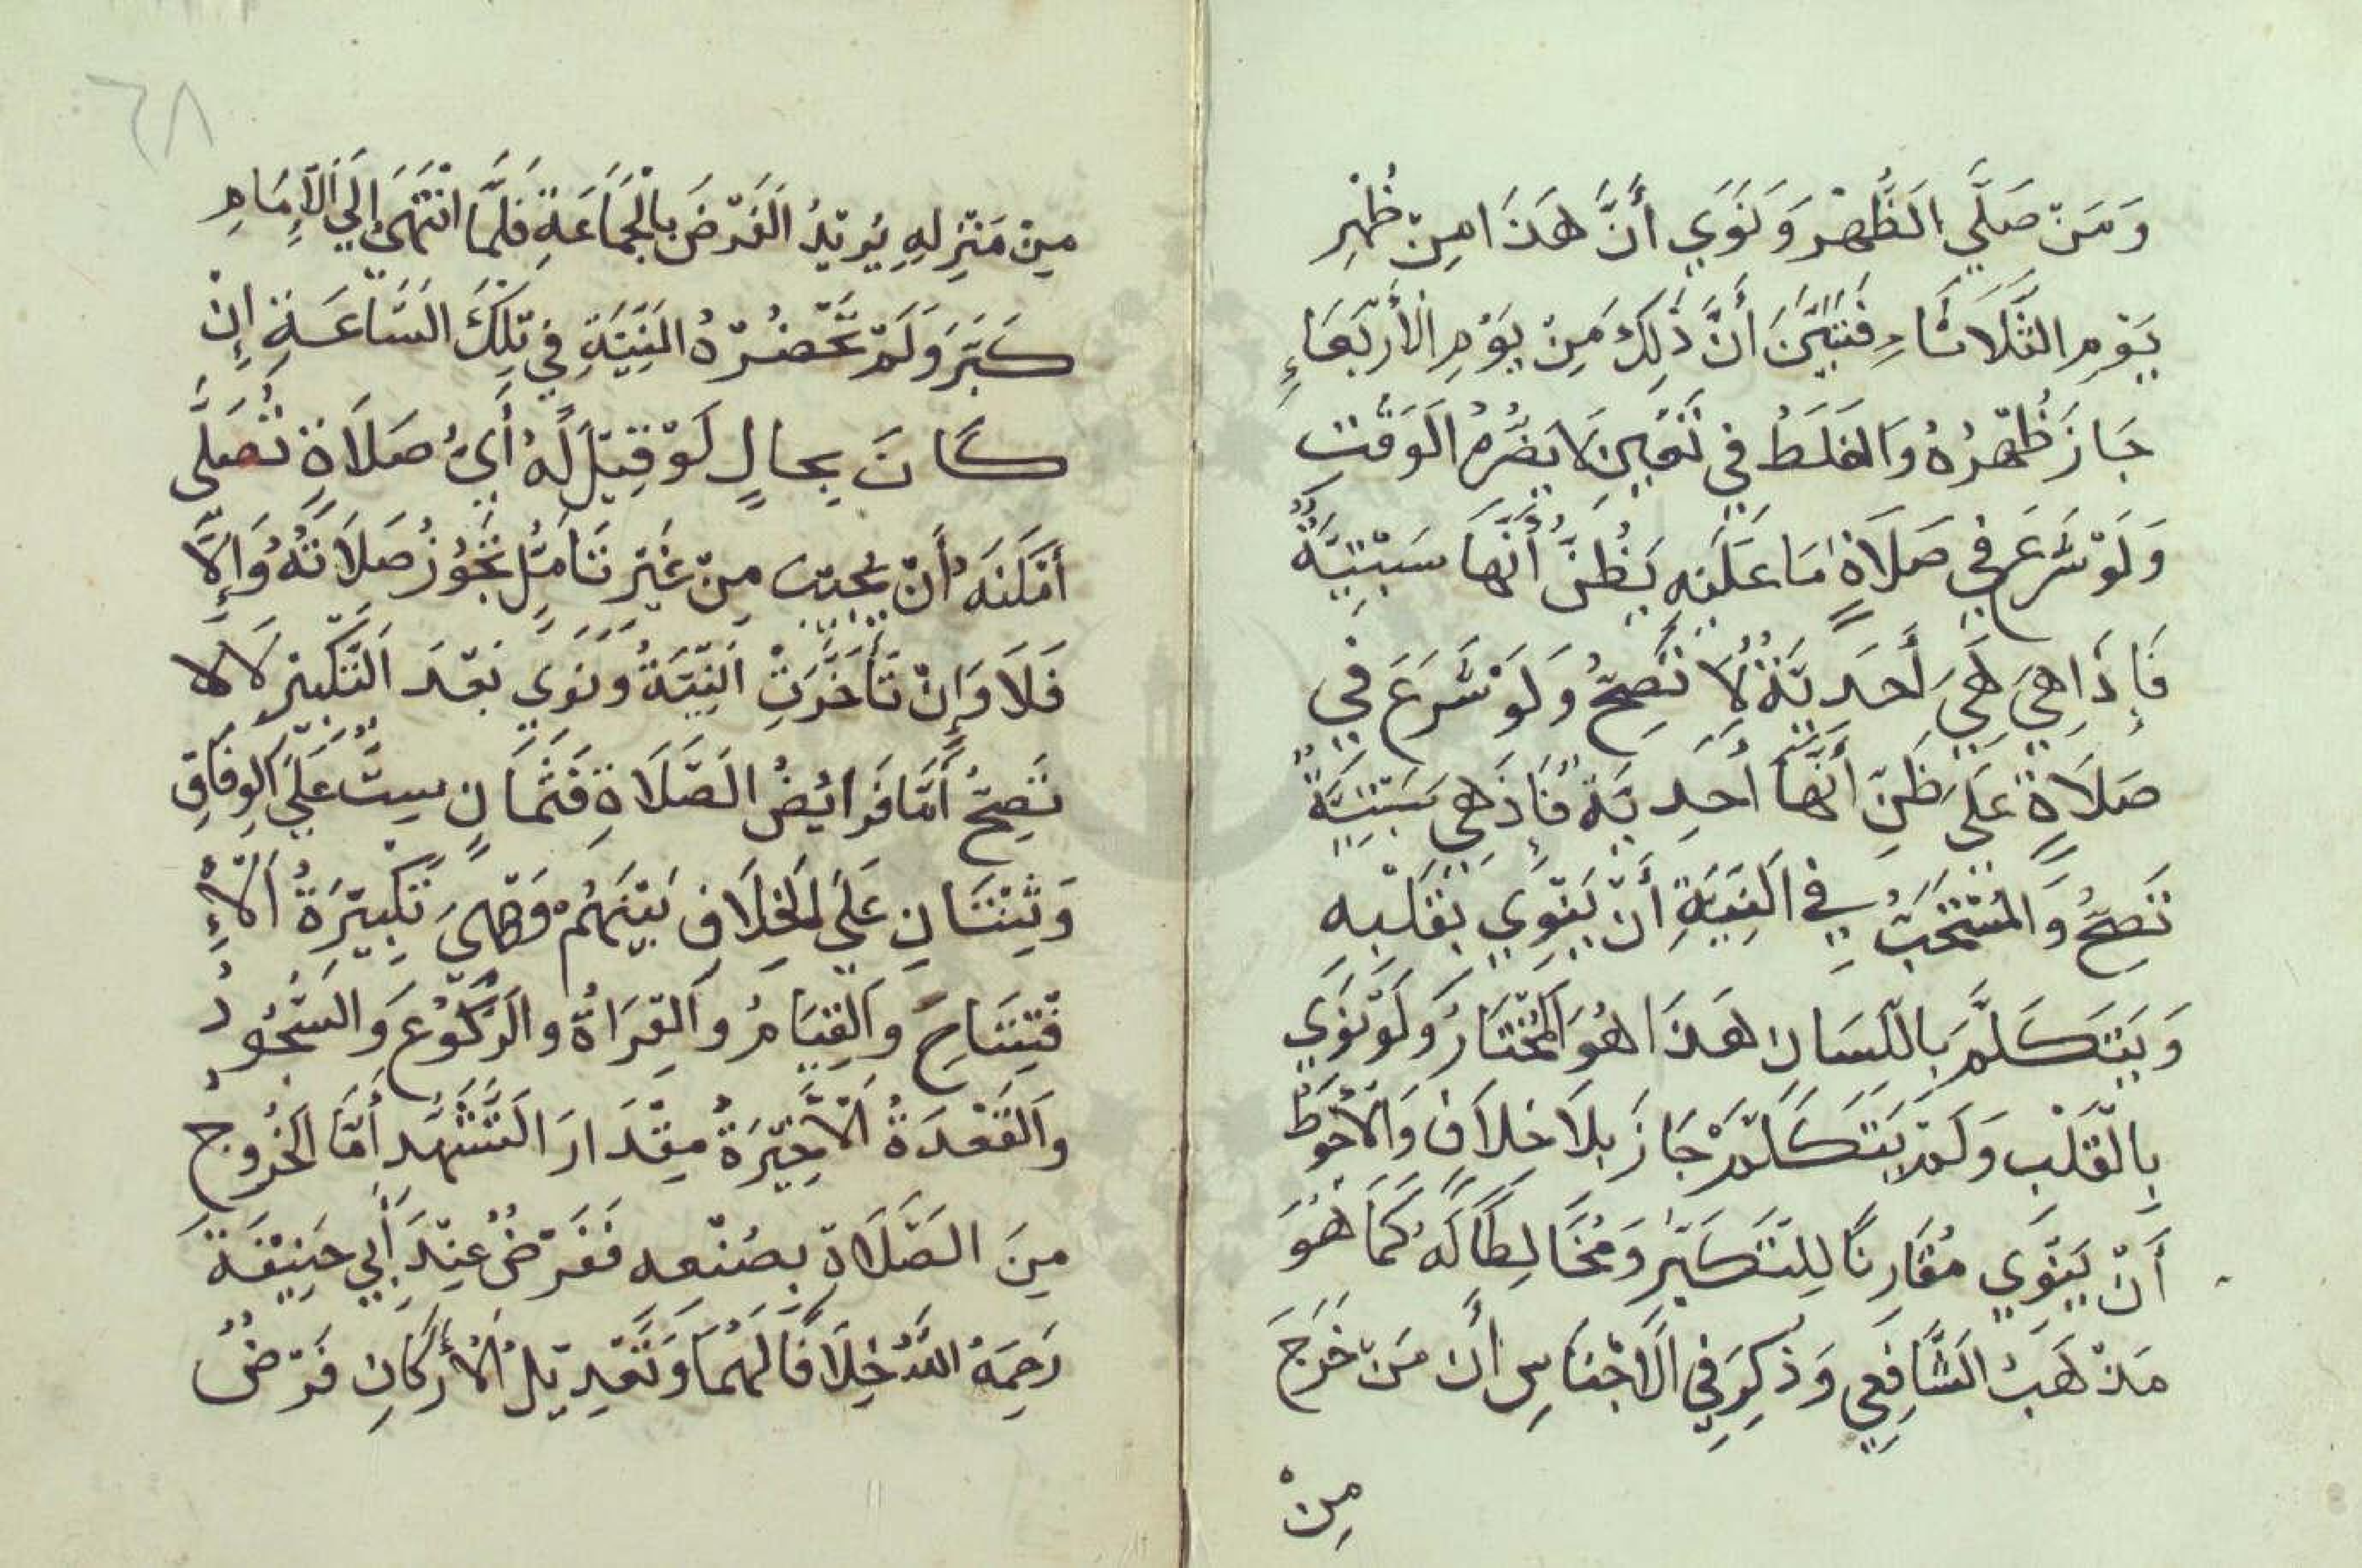 وَمَنْ صَلَّي الظُّهْرَ وَنَوَي أَنَّ هَذَا مِنْ ظُهْرِ
يَوْمِ الثَّلَاثَاءِ فَتَبَيَّنَ أَنَّ ذَلِكَ مِنْ يَوْمِ الْأَرْبَعَاءِ
جَازَ ظُهْرُهُ وَالغَلَطُ فِي تَعْيِينِ لَا يَضُرُّهُ الْوَقْتِ
وَلَوْ شَرَعَ فِي صَلَاةٍ مَا عَلَيْهِ يَظُنُّ أَنَّهَا سَبْتِيَّةٌ
فَإِذَا هِيَ هِيَ أَحَدِيَّةٌ لَا تَصِحُّ وَلَوْ شَرَعَ فِي
صَلَاةٍ عَلَي ظَنِّ أَنَّهَا أَحَدِيَّةٌ فَإِذَ هِيَ سَبْتِيَّةٌ
تَصِحُّ وَالْمُسْتَحَبُّ فِي النِّيَّةِ أَنْ يَنْوِيَ بِقَلْبِهِ
وَيَتَكَلَّمَ بِاللِّسَانِ هَذَا هُوَ الْمُخْتَارُ وَلَوْ نَوَي
بِالْقَلْبِ وَلَمْ يَتَكَلَّمْ جَازَ بِلَا خِلَافٍ وَالْأَحْوَطُ
أَنْ يَنْوِي مُقَارِنًا لِلتَّكْبِيرِ وَمُخَالِطًا لَهُ كَمَا هُوَ
مَذْهَبُ الشَّافِعِي وَذُكِرَ فِي الْأَجْنَاسِ أَنَّ مَنْ خَرَجَ
مِنْ
٦٨
مِنْ مَنْزِلِهِ يُرِيدُ الْفَرْضَ بِالْجَمَاعَةِ فَلَمَّا انْتَهَى إِلَي الْإِمَامِ
كَبَّرَ وَلَمْ تَحْضُرْهُ النِّيَّةِ فِي تِلْكَ السَّاعَةِ إِنْ
كَانَ بِحَالٍ لَوْ قِيلَ لَهُ أَيُّ صَلَاةٍ تُصَلَّى
أَمْكَنَهُ أَنْ يُجِيبَ مِنْ غَيْرِ تَأَمُّلٍ تَجُوزُ صَلَاتُهُ وَإِلَّا
فَلَا وَإِنْ تَأَخَّرَتِ النِّيَّةُ وَنَوَي بَعْدَ التَّكْبِيرِ لَا لا
تَصِحُّ أَمَّا فَرَائِضُ الصَّلَاةِ فَثَمَانٍ سِتٌّ عَلَي الْوِفَاقِ
وَثِنْتَانِ عَلَي الْخِلَافِ بَيْنَهُمْ وَهِيَ تَكْبِيرَةُ الْاِ
فْتِتَاحِ وَالْقِيَامُ وَالْقِرَاءَةُ وَالرُّكُوعُ وَالسُّجُودُ
وَالْقَعْدَةُ الْأَخِيرَةُ مِقْدَارَ التَّشَهُّدِ أَمَّا الْخُرُوجُ
مِنَ الصَّلَاةِ بِصُنْعِهِ فَفَرْضٌ عِنْدَ أَبِي حَنِيْفَةَ
رَحِمَهُ اللَّهُ خِلَافًا لَهُمَا وَتَعْدِيلُ الْأَرْكَانِ فَرْضٌ